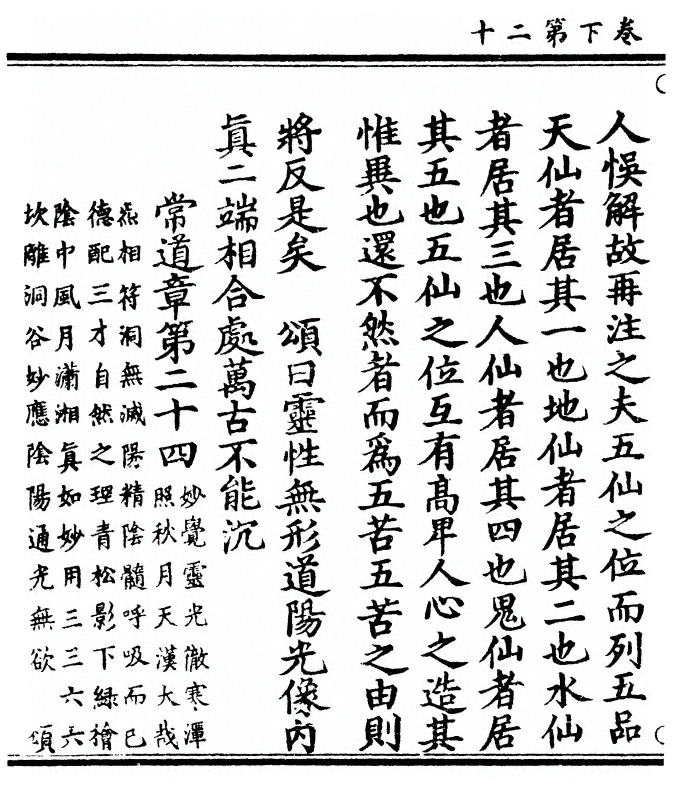 卷下第二十
人悞解故再注之夫五仙之位而列五品
天仙者居其一也地仙者居其二也水仙
者居其三也人仙者居其四也鬼仙者居
其五也五仙之位互有高卑人心之造其
惟異也還不然者而爲五苦五苦之由則
將反是矣 頌曰靈性無形道陽光像內
眞二端相合處萬古不能沉
常道章第二十四
妙覺靈光徹寒潭
照秋月天漢大哉
炁相符洞無滅陽精陰髓呼吸而已
德配三才自然之理青松影下綠檜
陰中風月瀟湘眞如妙用三三六六
坎離洞谷妙應陰陽通光無欲 頌